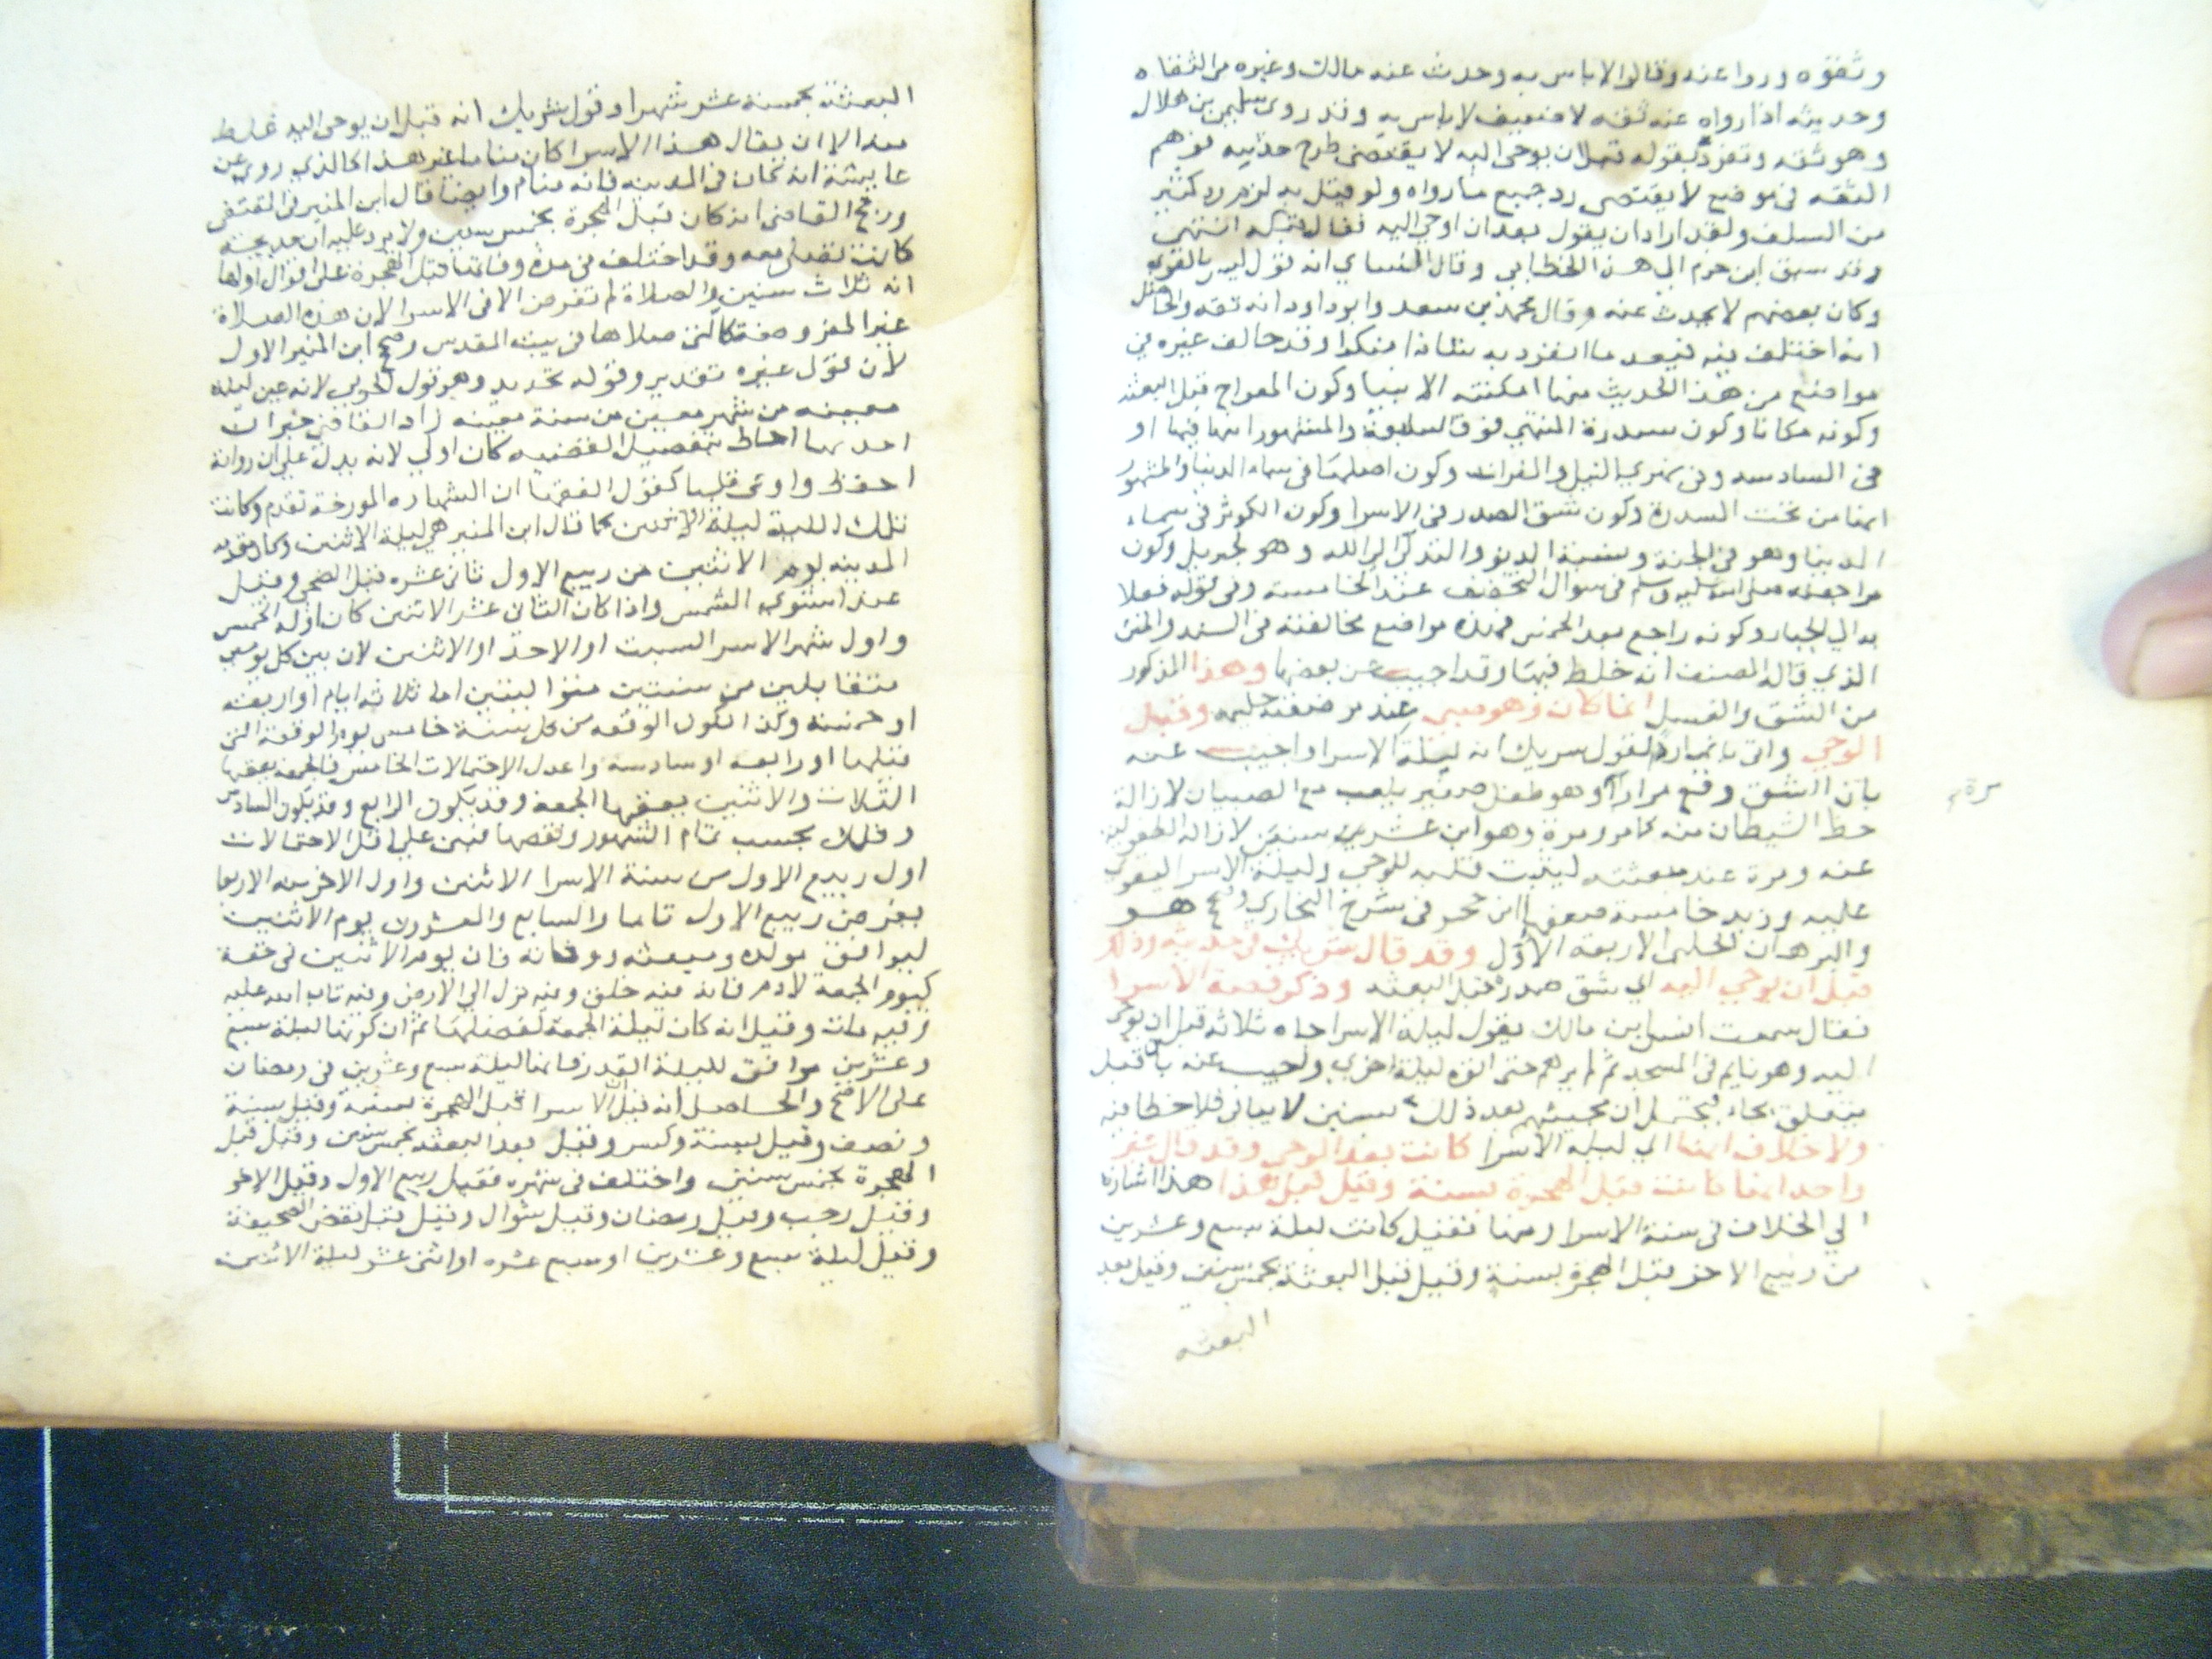 وثقوه ورووا عنه وقالوا لا باس به وحدث عنه مالك وغيره من الثقاه
وحديثه اذا رواه عنه ثقه لا ضعيف لا باس به وقد روى سليمن بن هلال
وهو ثقه وتفرده بقوله قبل ان يوحى اليه لا يقتضى طرح حديثه فوهم
الثقه فى موضع لا يقتضى رد جميع ما رواه ولو قيل به لزم رد كثير
من السلف ولقد اراد ان يقول بعد ان اوحي اليه فقال قبله انتهى
وقد سبق ابن حزم الى هذا الخطابي وقال النساي انه نول ليس بالقوي
وكان بعضهم لا يحدث عنه وقال محمد بن سعد وابو داود انه ثقه والحاصل
انه اختلف فيه فيعد ما انفرد به شاذا منكرا وقد خالف غيره في
مواضع من هذا الحديث منها امكنته الانبيا وكون المعراج قبل البعثه
وكونه مناما وكون سدرة المنتهي فوق السابعة والمشهور انها فيها او
فى السادسه وفى نهري النيل والفرات وكون اصلهما فى سماء الدنيا والمشهور
انهما من تحت السدرة وكون شق الصدر فى الاسرا وكون الكوثر فى سماء
الدنيا وهو فى الجنة ونسبة الدنو والتدلى الى الله وهو لجبريل وكون
مراجعته صلى الله عليه وسلم فى سوال التخفيف عند الخامسة وفى قوله فعلا
به الى الجبار وكونه راجع بعد الخمس فهذه مواضع مخالفته فى السند والمتن
الذي قال المصنف انه خلط فيها وقد اجيب عن بعضها وهذا المذكور
من الشق والغسل انما كان وهو صبي عند مرضعته حليمه وقبل
الوحي واتى بانما ردا لقول شريك انه ليلة الاسرا واجيب عنه
بان الشق وقع مرارا وهو طفل صغير يلعب مع الصبيان لازالة
حظ الشيطان منه كما مر ومرة وهو ابن عشرين سنين لازاله الطفولية
عنه ومرة عند مبعثته ليثبت قلبه للوحي وليلة الاسرا ليقوي
عليه وزيد خامسة ضعفها ابن حجر فى شرح البخاري وصح هو
والبرهان الحلبى الاربعه الاول وقد قال شريك فى حديثه وذلك
قبل ان يوحي اليه اي شق صدره قبل البعثه وذكر قصة الاسرا
فقال سمعت انس ابن مالك يقول ليلة الاسرا جاه ثلاثه قبل ان يوحى
اليه وهو نايم فى المسجد ثم لم يرهم حتى اتوه ليلة اخري واجيب عنه بان قبل
متعلق بجاء فيحتمل ان مجيئهم بعد ذلك سنين لا يبالى فلا خطا فيه
ولا خلاف انها اي ليله الاسرا كانت بعد الوحي وقد قال غير
واحد انها كانت قبل الهجرة بسنة وقيل قبل هذا هذا اشارة
الي الخلاف فى سنة الاسرا ومنها فقيل كانت ليلة سبع وعشرين
من ربيع الاخر قبل الهجرة بسنة وقيل قبل البعثة بخمس سنين وقيل بعد
البعثه
مرة
البعثة بخمسة عشر شهرا وقول شريك انه قبل ان يوحى اليه غلط
منه الا ان يقال هذا الاسرا كان مناما غير هذا كالذي روي عن
عايشة انه كان فى المدينه فانه منام وايضا قال ابن المنير فى المقتفى
ورجح القاضى انه كان قبل الهجرة بخمس سنين ولا يرد عليه ان خديجة
كانت تصلى معه وقد اختلف فى مدة وفاتها قبل الهجرة على اقوال اولها
انه ثلاث سنين والصلاة لم تفرض الا فى الاسرا لان هذه الصلاة
غير المفروضة كالتى صلاها فى بيت المقدس ورجح ابن المنير الاول
لان قول غيره تقدير وقوله تحديد وهو قول الحربي لانه عين ليله
معينه من شهر معين من سنة معينه زاد القاضي خبران
احدهما احاط بتفصيل القضيه كان اولي لانه يدل على ان رواته
احفظ واوعى قلبا كقول الفقها ان الشهاده المورخة تقدم وكانت
تلك الليلة ليلة الاثنين كما قال ابن المنير هي ليلة الاثنين وكان مقدمه
المدينه يوم الاثنين من ربيع الاول ثانى عشره قبل الضحى وقيل
عند استوي الشمس واذا كان الثانى عشر الاثنين كان اوله الخميس
واول شهر الاسرا السبت او الاحد او الاثنين لان بين كل يومين
متقابلين من سنتين متواليتين اما ثلاثه ايام او اربعه
او خمسه وكذا تكون الوقفه من كل سنة خامس يوم الوقفة التى
قبلها او رابعه او سادسه واعدل الاحتمالات الخامس فالجمعه يعقبها
الثلاث والاثنين يعقبها الجمعه وقد يكون الرابع وقد يكون السادس
وذلك بحسب تمام الشهور ونقصها فبنى علي اقل الاحتمالات
اول ربيع الاول من سنة الاسرا الاثنين واول الاخر منه الاربعا
بفرض ربيع الاول تاما والسابع والعشرون يوم الاثنين
ليوافق مولده ومبعثه ووفاته فان يوم الاثنين فى حقه
كيوم الجمعة لادم فانه فيه خلق وفيه نزل الي الارض وفيه تاب الله عليه
وفيه مات وقيل انه كان ليلة الجمعة لفضلها ثم ان كونها ليلة سبع
وعشرين موافق لليلة القدر فانها ليلة سبع وعشرين فى رمضان
على الاصح والحاصل انه قيل ان الاسرا قبل الهجرة بسنة وقيل بسنة
ونصف وقيل بسنة وكسر وقيل بعد البعثه بخمس سنين وقيل قبل
الهجرة بخمس سنين واختلف فى شهره فقيل ربيع الاول وقيل الاخر
وقيل رجب وقيل رمضان وقيل شوال وقيل قبل نقض الصحيفة
وقيل ليلة سبع وعشرين او سبع عشره او اثنى عشر ليلة الاثنين